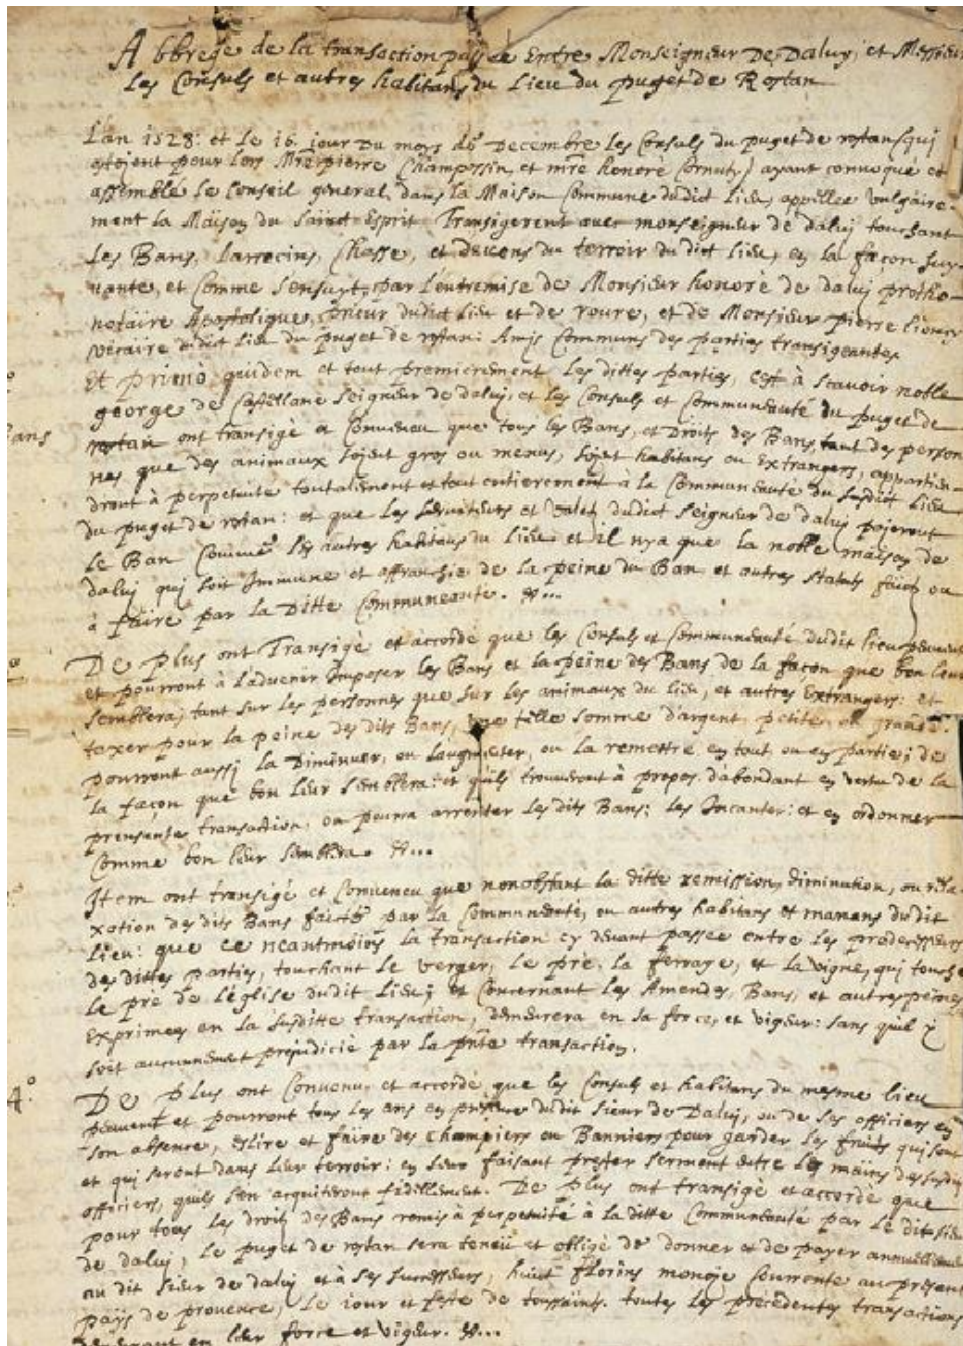 Abbregé de la transaction passée Entre Monseigneur De Daluy, et Messieurs
Les Consuls et autres habitans du Lieu du puget de Rostan
L'an 1528: et le 16 jour Du moys de Decembre les Consuls du puget de rostan (qui
estoient pour lors Mre pierre Champossin, et mre honoré Cornuty) ayant convoqué et
assemblé le Conseil general, dans la Maison Commune dudict Lieu, appellée vulgaire-
ment la Maison du Sainct Esprit Transigerent avec monseigneur de daluy touchant
Les Bans, Larrecins, Chasse, et devens du terroir du dict lieu, en la façon suy-
vante, et Comme s'ensuyt, par l'entremise de Monsieur honoré de daluy protho-
notaire Apostolique, prieur dudict Lieu et de roure, et de Monsieur pierre
vicaire dudict Lieu du puget de rostan: Amis Communs des parties transigeantes
Et primò quidem et tout premierement Les dittes parties, c'est à scavoir noble
george de Castellane seigneur de daluy, et les Consuls et Communeauté du puget de
Bans
rostan ont transigé et Conveneu que tous les Bans, et Droits des Bans, tant des person-
nes que des animaux soyent gros ou menus, soyet habitans ou Extrangers, appartien-
dront à perpetuité toutalement et tout entierement à la Communeauté du susdict Lieu
du puget de rostan: et que les serviteurs et valets dudict seigneur de daluy pajeront
Le Ban Comme les autres habitans du Lieu et il nya que la noble maison de
daluy qui soit Immune et affranchie de la peine du Ban et autres statuts faicts ou
à faire par la Ditte Communeauté. &...
De plus ont Transigé et accordé que les Consuls et Communeauté dudit lieu peuvent
et pourront à l'advenir Imposer les Bans et la peine des Bans de la façon que bon leur
semblera; tant sur les personnes que sur les animaux du lieu, et autres Extrangers: et
taxer pour la peine des dits Bans, une telle somme d'argent petite ou grande.
pourront aussy la Diminuer, ou l'augmenter, ou la remettre en tout ou en partie; de
la façon que bon leur semblera: et quils trouveront à propos. d'abondant en vertu de la
prensente transaction, on pourra arrenter les dits Bans; les Incanter: et en ordonner
Comme bon leur semblera. &...
Item ont transigé et Conveneu que nonobstant la ditte remission, diminution, ou rela-
xation des dits Bans faicte par la Communeauté, ou autres habitans et manans dudit
lieu: que ce neantmoions la transaction cy devant passée entre les predecesseurs
des dittes parties, touchant le verger, le pré, la ferrage, et la vigne, qui touche
le pré de l'église dudit Lieu; et Concernant les Amendes, Bans, et autres peines
Exprimées en la susditte transaction, demeurera en sa force, et vigeur: sans quil y
soit aucunnement préjudicié par la pnte transaction.
4.°
De plus ont Convenu, et accordé que les Consuls et habitans du mesme lieu
peuvent et pourront tous les ans en présence dudit sieur de Daluy, ou de ses officiers en
son absence, eslire et faire des Champiers ou Banniers pour garder les fruits qui sont
et qui seront dans leur terroir: en leur faisant prester serment entre les mains des susdits
officiers, quils s'en acquiteront fidellement. De plus ont transigé et accordé que
pour tous les droits des Bans remis à perpetuité à la ditte Communeauté par Le dit sieur
de daluy, le puget de rostan sera teneu et obligé de donner et de payer annuellement
au dit sieur de daluy et à ses successeurs, huict florins monoje Courrente au présent
pays de provence, Le iour et feste de toussaints. toutes les précédentes transactions
demeurant en leur force et vigeur. &...